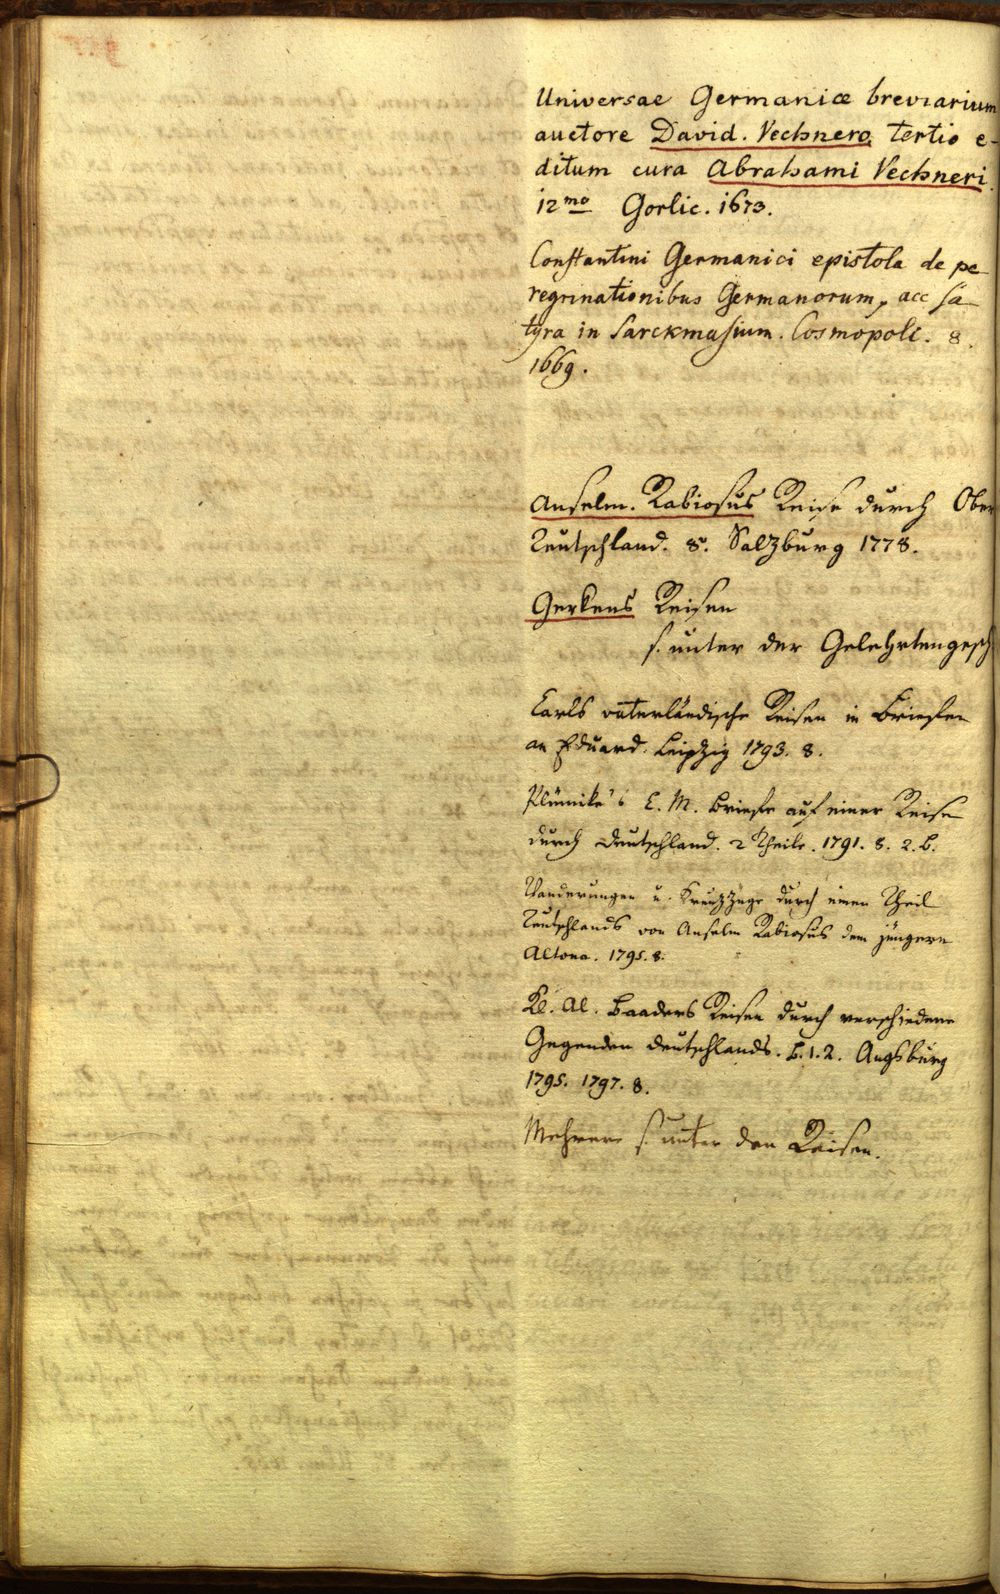 Universae Germaniæ breviarium
auctore David. Vechnero, tertio e-
ditum cura Abrahami Vechneri.
12mo Gorlic. 1673.
Constantini Germanici epistola de pe
regrinationibus Germanorum, acc Sa
tyra in Sarckmasium. Cosmopoli. 8.
1669.
Anselm. Rabiosus Reise durch Ober
Teutschland. 8. Salzburg 1778.
Gerkens Reisen
s. unter der Gelehrtengesch
Carls vaterländische Reisen in Briefen
an Eduard. Leipzig 1793. 8.
Plümike's C. M. Briefe auf einer Reise
durch Deutschland. 2 Theile. 1791. 8. 2. B.
Wanderungen u. Kreuzzüge durch einen Theil
Teutschlands von Anselm Rabiosus dem jüngern
Altona. 1795. 8.
Kl. Al. Baaders Reisen durch verschiedene
Gegenden Deutschlands. B. 1. 2. Augsburg
1795. 1797. 8.
Mehrere s. unter den Reisen.